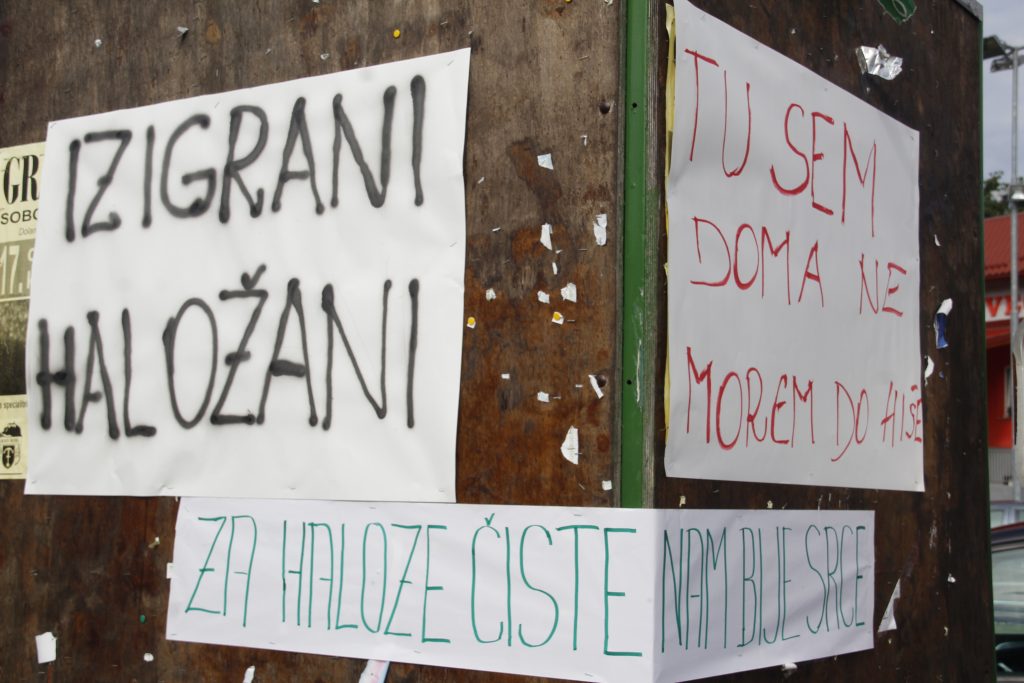 IZIGRANI
HALOŽANI
TU SEM
DOMA NE
MOREM DO HIŠE
ZA HALOZE ČISTE NAM BIJE SRCE
GR
SOBO
17.